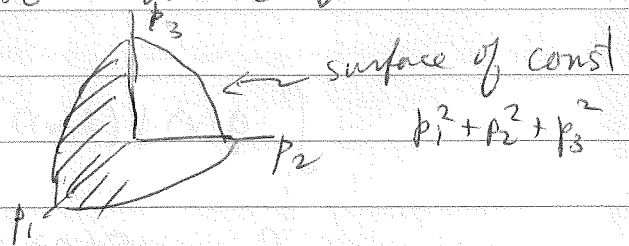 p₃
surface of const
p₁² + p₂² + p₃²
p₂
p₁